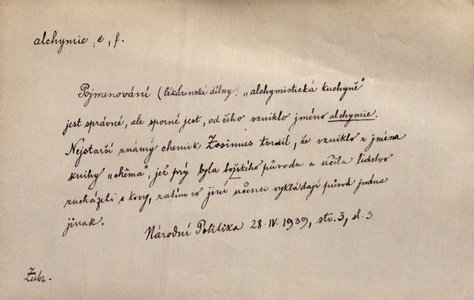 alchymie, e, f.
Pojmenování (likárnické dílny) „alchymistická kuchyně"
jest správné, ale sporné jest, od čeho vzniklo jméno alchymie.
Nejstarší známý chemik Zosimus tvrdil, že vzniklo z jména
knihy „chéma", jež prý byla božského původu a učila lidstvo
zacházeti s kovy, zatím co jiní učenci vykládají původ jména
jinak.
Národní Politika 28-IV-1939, str. 3, sl. 3
Zubr.